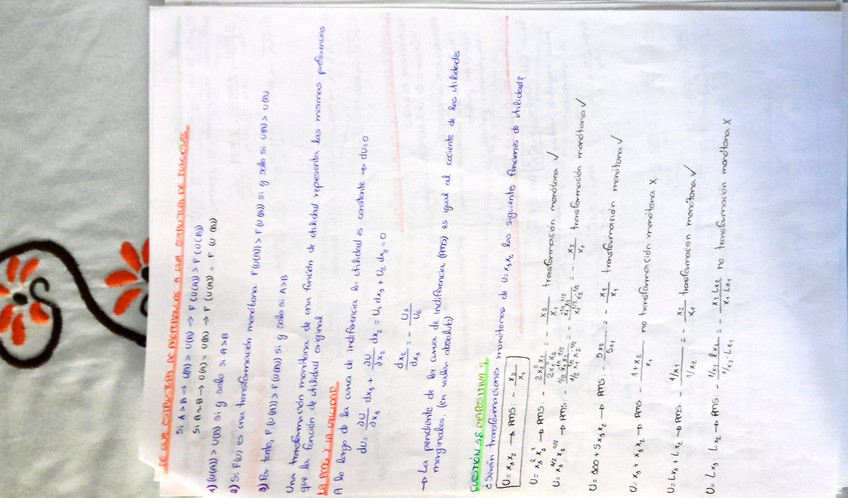 DE UNA ESTRUCTURA DE PREFERENCIAS A UNA ESTRUCTURA DE FUNCIONES
Si A>B → U(A) > U(B) → F(U(A)) > F(U(B))
Si A~B → U(A) = U(B) → F(U(A)) = F(U(B))
1) U(A) > U(B) si y solo si A>B
2) Si F(U) es una transformación monótona: F(U(A)) > F(U(B)) si y solo si U(A) > U(B)
3) Por tanto, F(U(A)) > F(U(B)) si y solo si A>B
Una transformación monótona de una función de utilidad representa las mismas preferencias
que la función de utilidad original
LA RMS Y LA UTILIDAD
A lo largo de la curva de indiferencia la utilidad es constante → dU=0
dU = ∂U/∂x₁ dx₁ + ∂U/∂x₂ dx₂ = U₁ dx₁ + U₂ dx₂ = 0
dx₂/dx₁ = - U₁/U₂
→ La pendiente de la curva de indiferencia (RMS) es igual al cociente de las utilidades
marginales (en valor absoluto)
CUESTIÓN DIAPOSITIVA
¿Serán transformaciones monótonas de U=x₁x₂ las siguientes funciones de utilidad?
U= x₁x₂ → RMS: - x₂/x₁
U= x₁²x₂² → RMS - 2x₂²x₁/2x₁²x₂ = - x₂/x₁ transformación monótona ✓
U= x₁^1/2 x₂^1/2 → RMS - = - x₂/x₁ transformación monótona ✓
U= 200 + 5x₁x₂ → RMS - 5x₂/5x₁ = - x₂/x₁ transformación monótona ✓
U= x₁ + x₁x₂ → RMS - 1+x₂/x₁ no transformación monótona X
U= Lx₁ + Lx₂ → RMS - 1/x₁/1/x₂ = - x₂/x₁ transformación monótona ✓
U= Lx₁ · Lx₂ → RMS - 1/x₁ Lx₂/1/x₂ Lx₁ = - x₂ Lx₂/x₁ Lx₁ no transformación monótona X